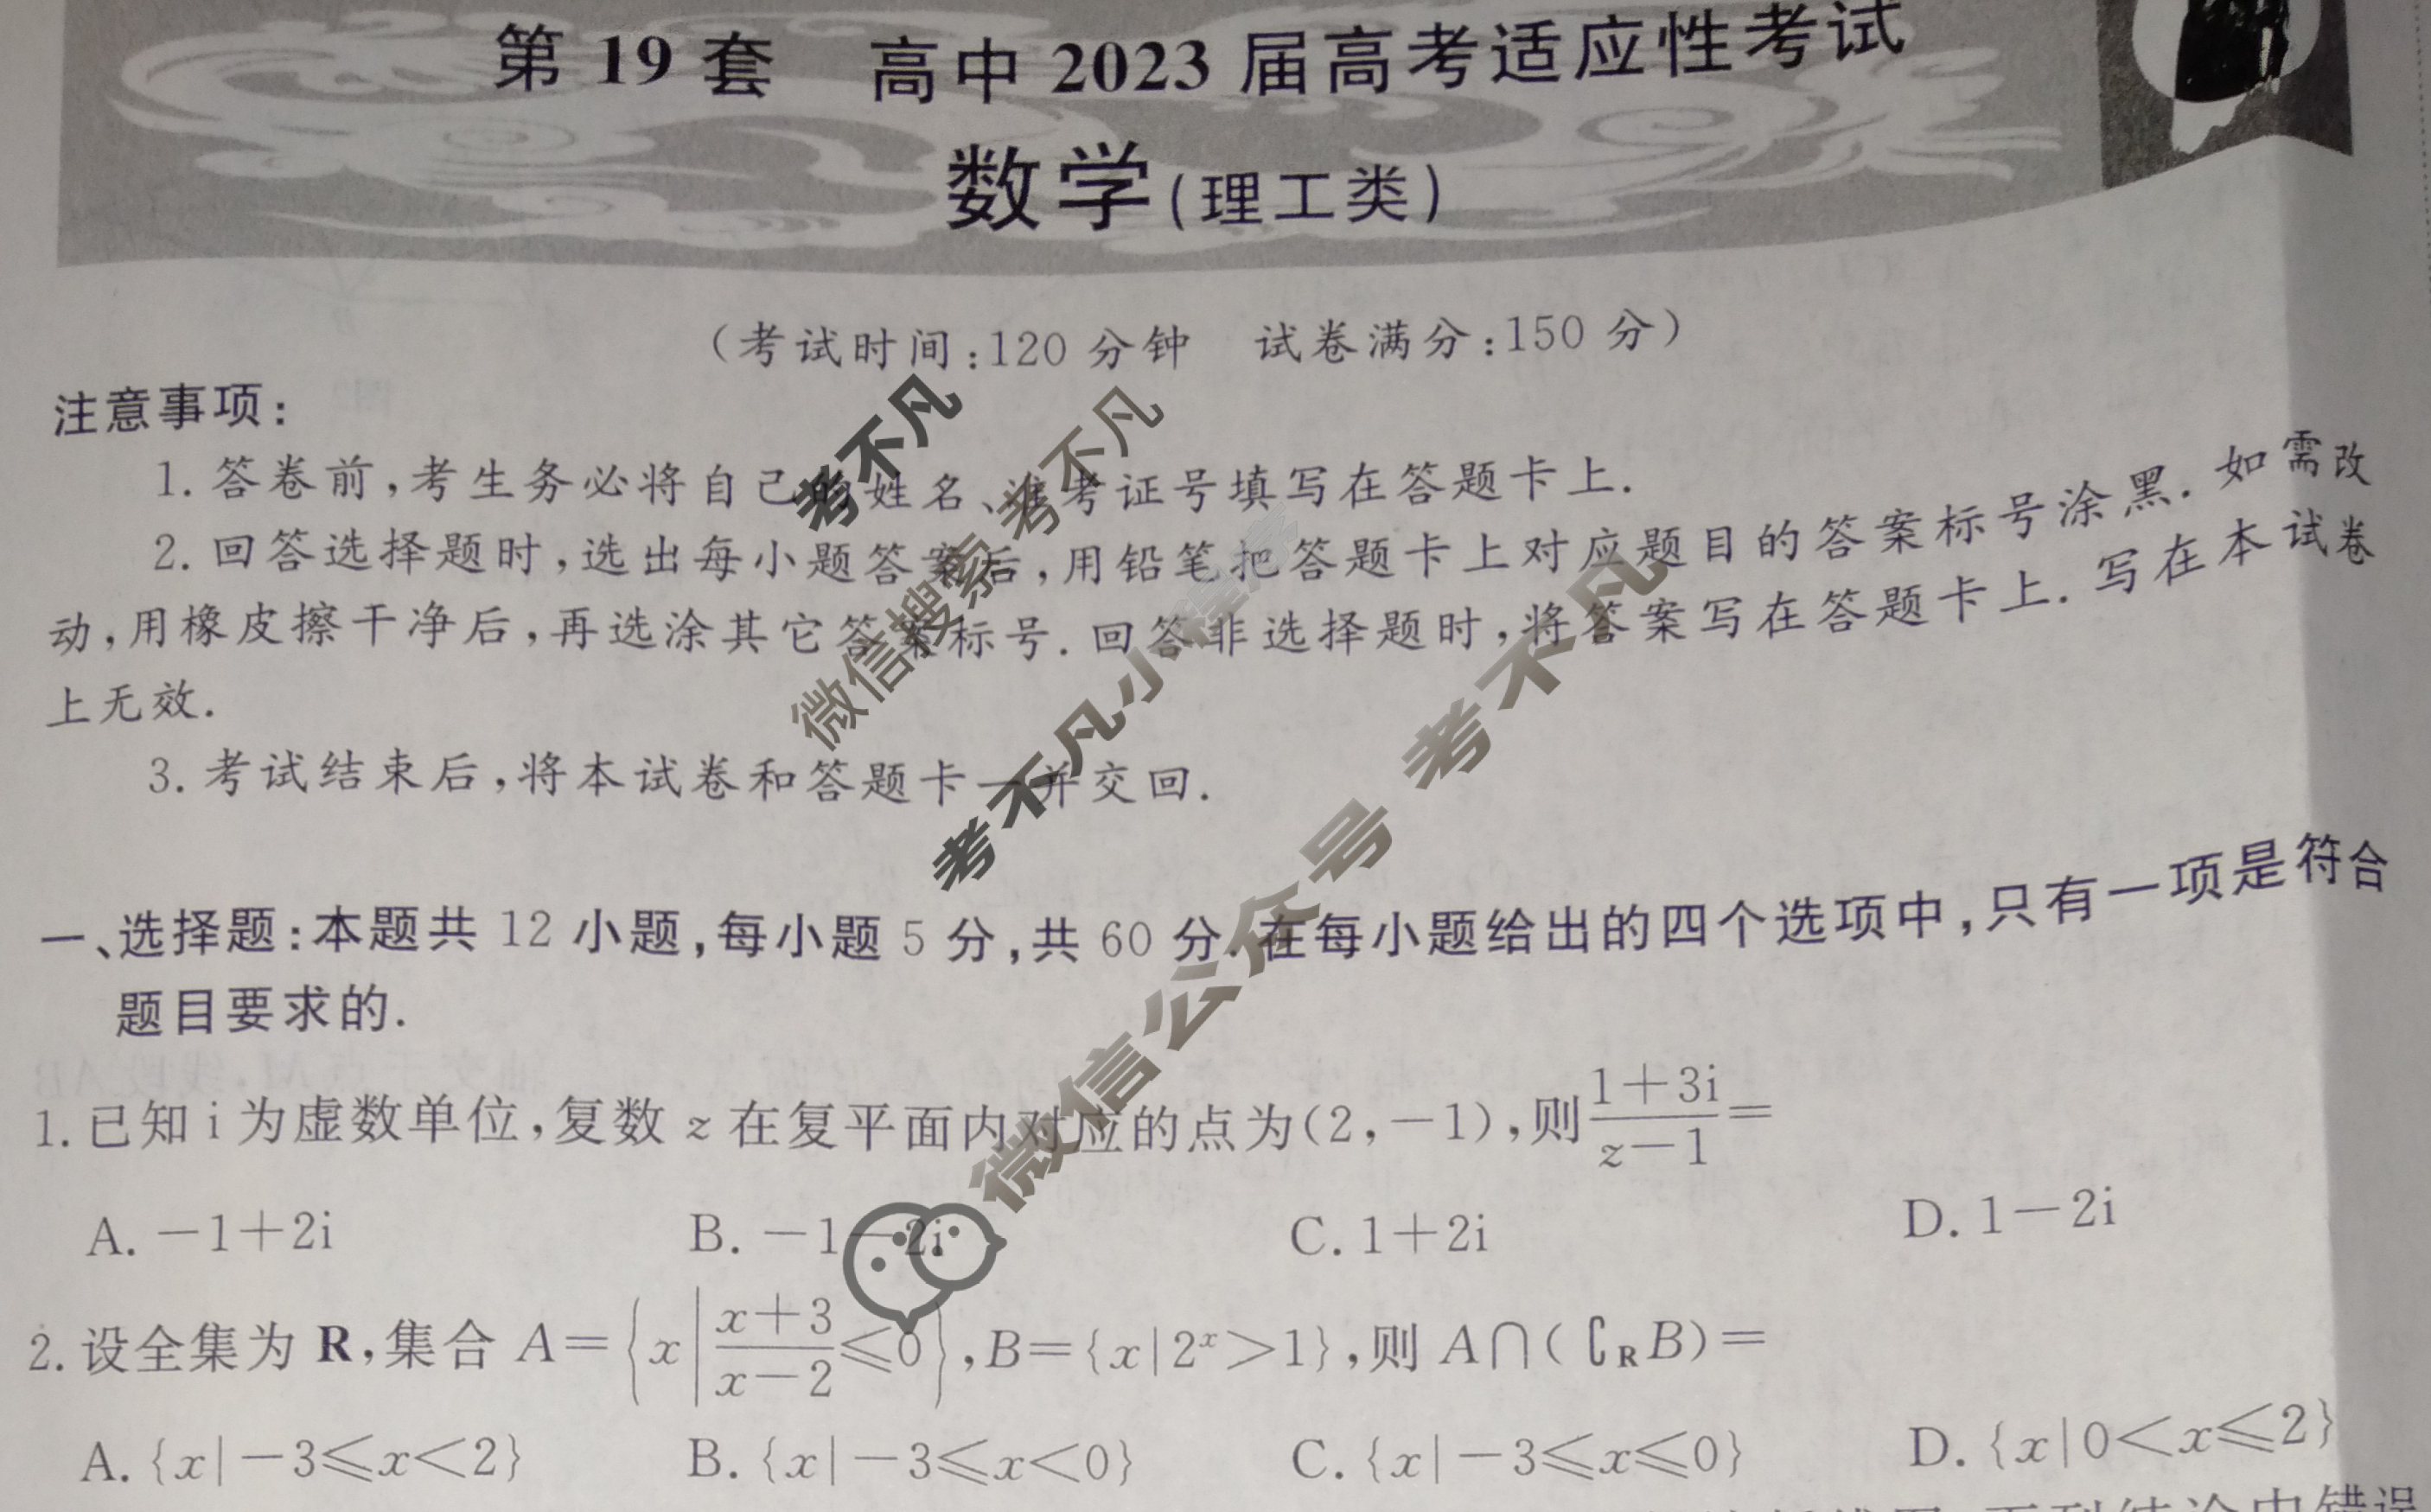 第 19 套 高中 2023 届高考适应性考试
数学(理工类)
(考试时间:120 分钟 试卷满分:150 分)
注意事项:
1. 答卷前,考生务必将自己的姓名、准考证号填写在答题卡上.
2. 回答选择题时,选出每小题答案后,用铅笔把答题卡上对应题目的答案标号涂黑. 如需改
动,用橡皮擦干净后,再选涂其它答案标号. 回答非选择题时,将答案写在答题卡上. 写在本试卷
上无效.
3. 考试结束后,将本试卷和答题卡一并交回.
考不凡
微信搜索 考不凡
考不凡小程序
微信公众号 考不凡
一、选择题:本题共 12 小题,每小题 5 分,共 60 分. 在每小题给出的四个选项中,只有一项是符合
题目要求的.
1. 已知 i 为虚数单位,复数 z 在复平面内对应的点为(2,-1),则 \frac{1+3i}{z-1}=
A. -1+2i B. -1-2i C. 1+2i D. 1-2i
2. 设全集为 R,集合 A={x|\frac{x+3}{x-2}≤0},B={x|2^x>1},则 A∩(∁_R B)=
A. {x|-3≤x<2} B. {x|-3≤x<0} C. {x|-3≤x≤0} D. {x|0<x≤2}